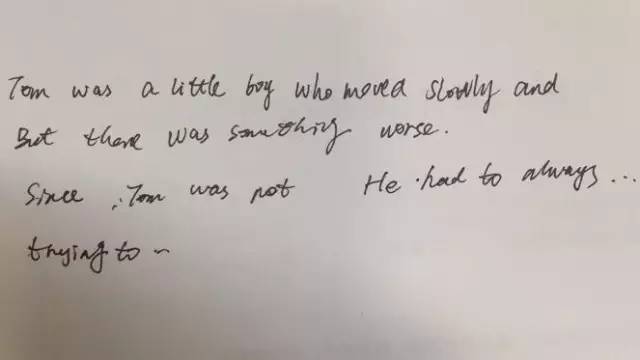 Tom was a little boy who moved slowly and
But there was something worse.
Since, Tom was not He had to always...
trying to ~